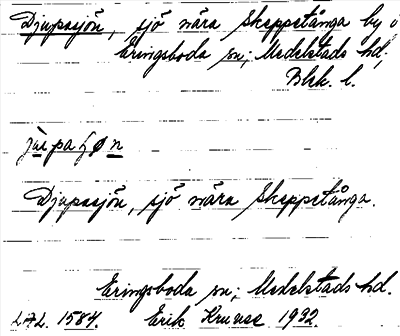 Djupasjön, sjö nära Skeppstånga by i
Eringsboda sn; Medelstads hd.
Blek. l.
Djupasjön, sjö nära Skeppstånga.
Eringsboda sn; Medelstads hd.
1584. Erik Kruuse 1932